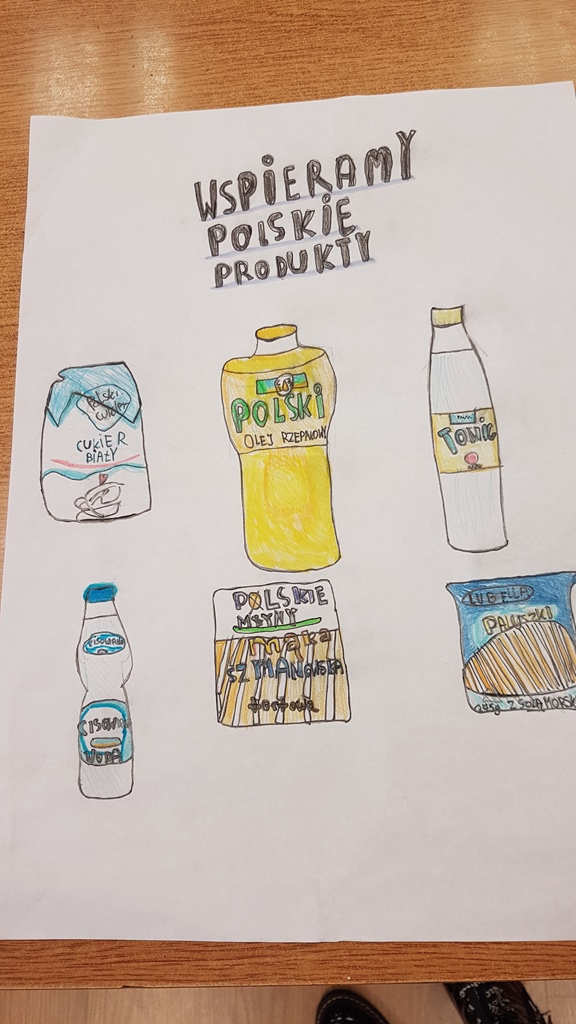 WSPIERAMY
POLSKIE
PRODUKTY
Polski
cukier
CUKIER
BIAŁY
POLSKI
OLEJ RZEPAKOWY
TONIC
CISOWIANKA
WODA
POLSKIE
MŁYNY
mąka
SZYMANOWSKA
tortowa
LUBELLA
PALUSZKI
Z SOLĄ MORSK